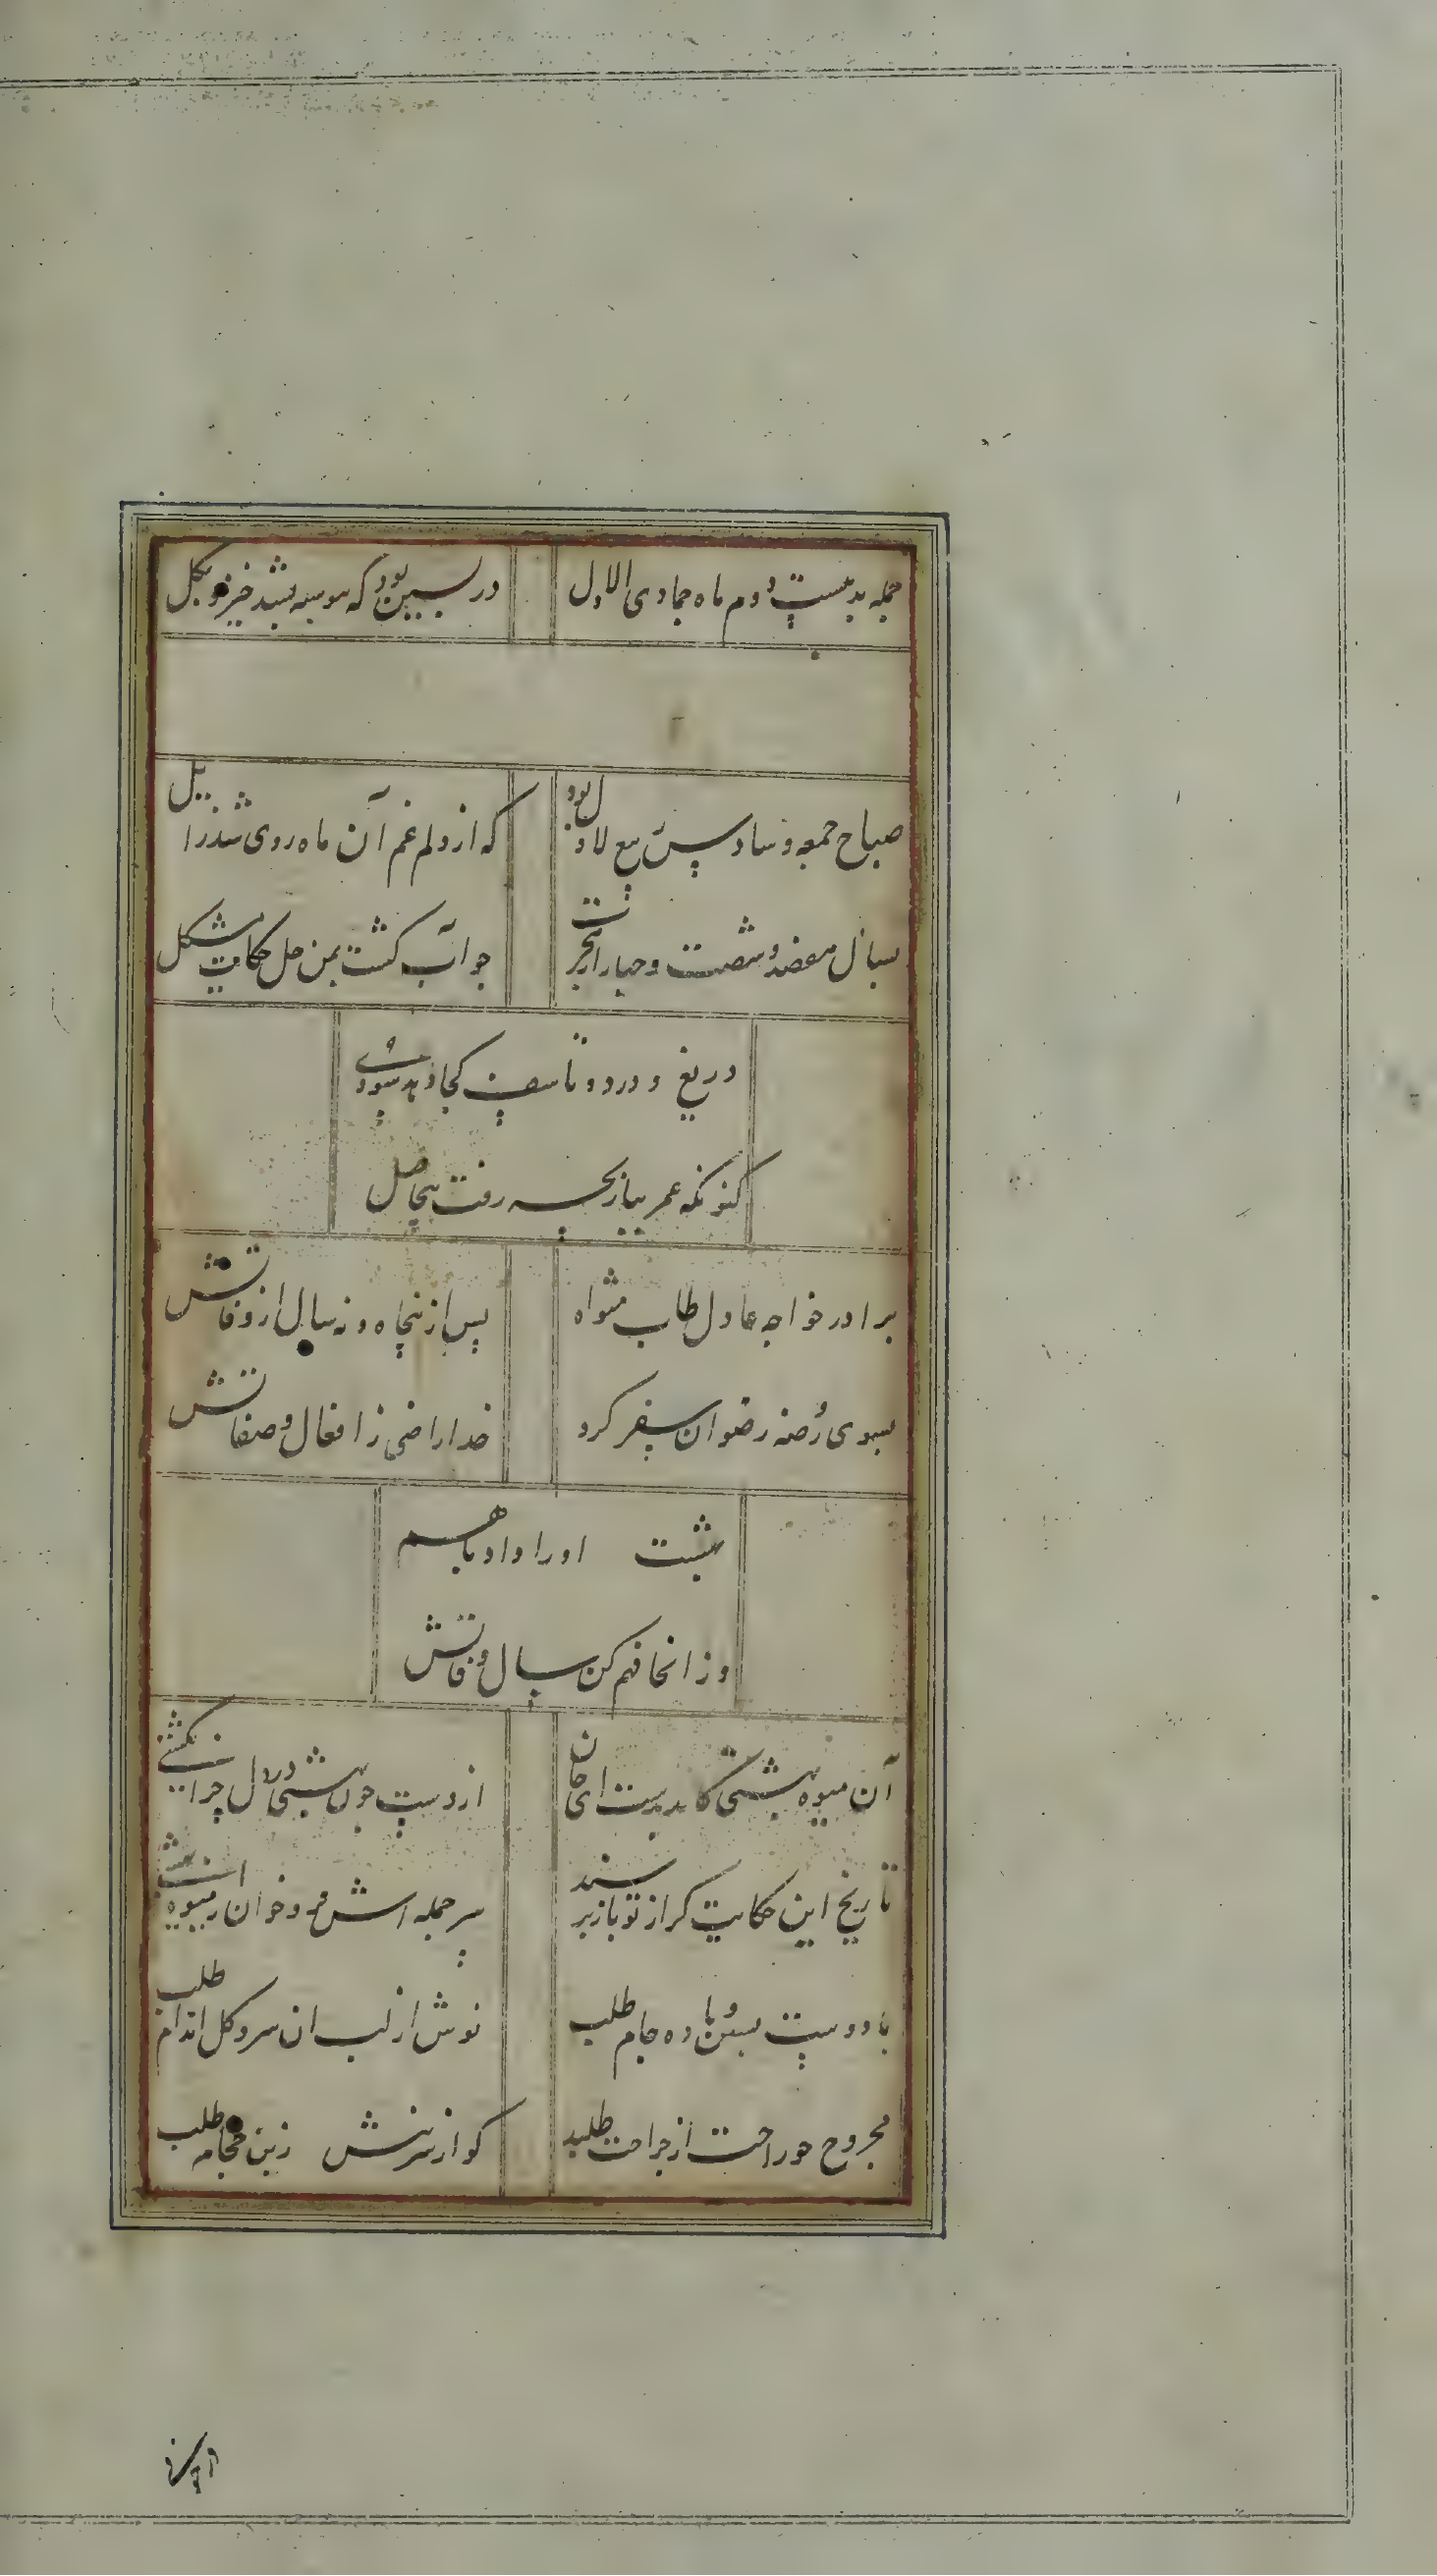 جمله بدبیست دوم ماه جمادی الاول
در پسین بود که پیوسته شد جزو بکل
صباح جمعه و سادس ربیع لاول بود
که از دلم غم آن ماه روی شد زایل
بسال هفصد و شصت و چهار از هجرت
جو آب کشت بمن حل حکایت مشکل
دریغ و درد و تاسف کجا دهد سودی
کنونکه عمر ببازیچه رفت بیحاصل
برادر خواجه عادل طاب مثواه
پس از پنجاه و نه سال از وفاتش
بسوی روضه رضوان سفر کرد
خدا راضی ز افعال و صفاتش
بهشت اورا داد باهم
وز انجا فهم کن سال وفاتش
آن میوه بهشتی کامد بدست ای جان
از دست چون بهشتی در دل چرا نکشتی
تاریخ این حکایت کر از تو باز پرسند
سر جمله اش فرو خوان از میوه بهشتی
با دوست بشین و باده جام طلب
بوش از لب ان سرو کل اندام طلب
مجروح جو راحت از جراحت طلبد
کو از سر نیش زین حجامه طلب